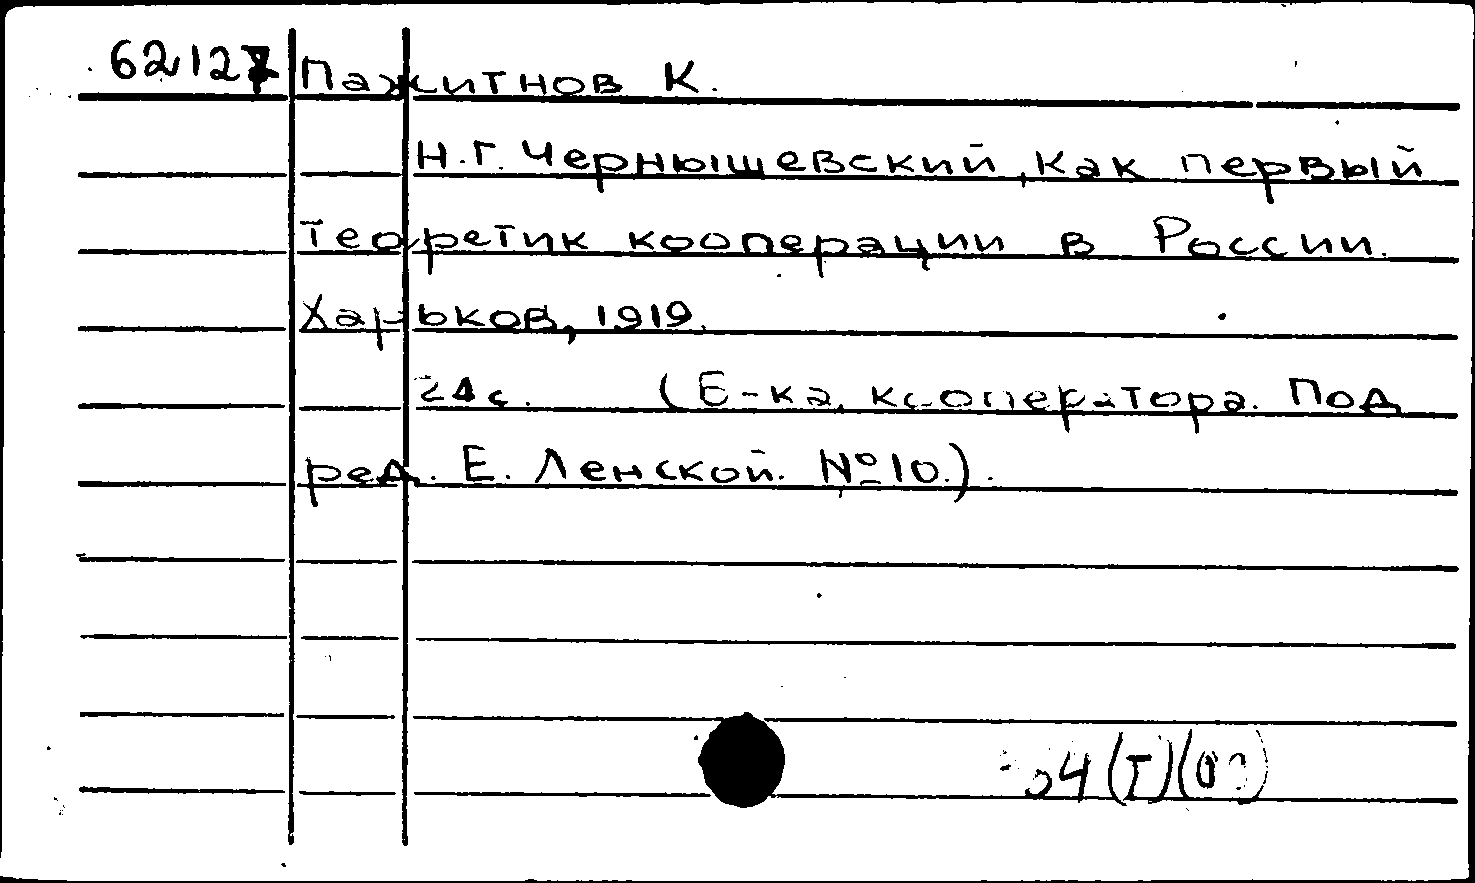 62127 Пажитнов К.
Н.Г. Чернышевский, как первый
теоретик кооперации в России.
Харьков, 1919.
24 с. (Б-ка, кооператора. Под
ред. Е. Ленской. № 10.).